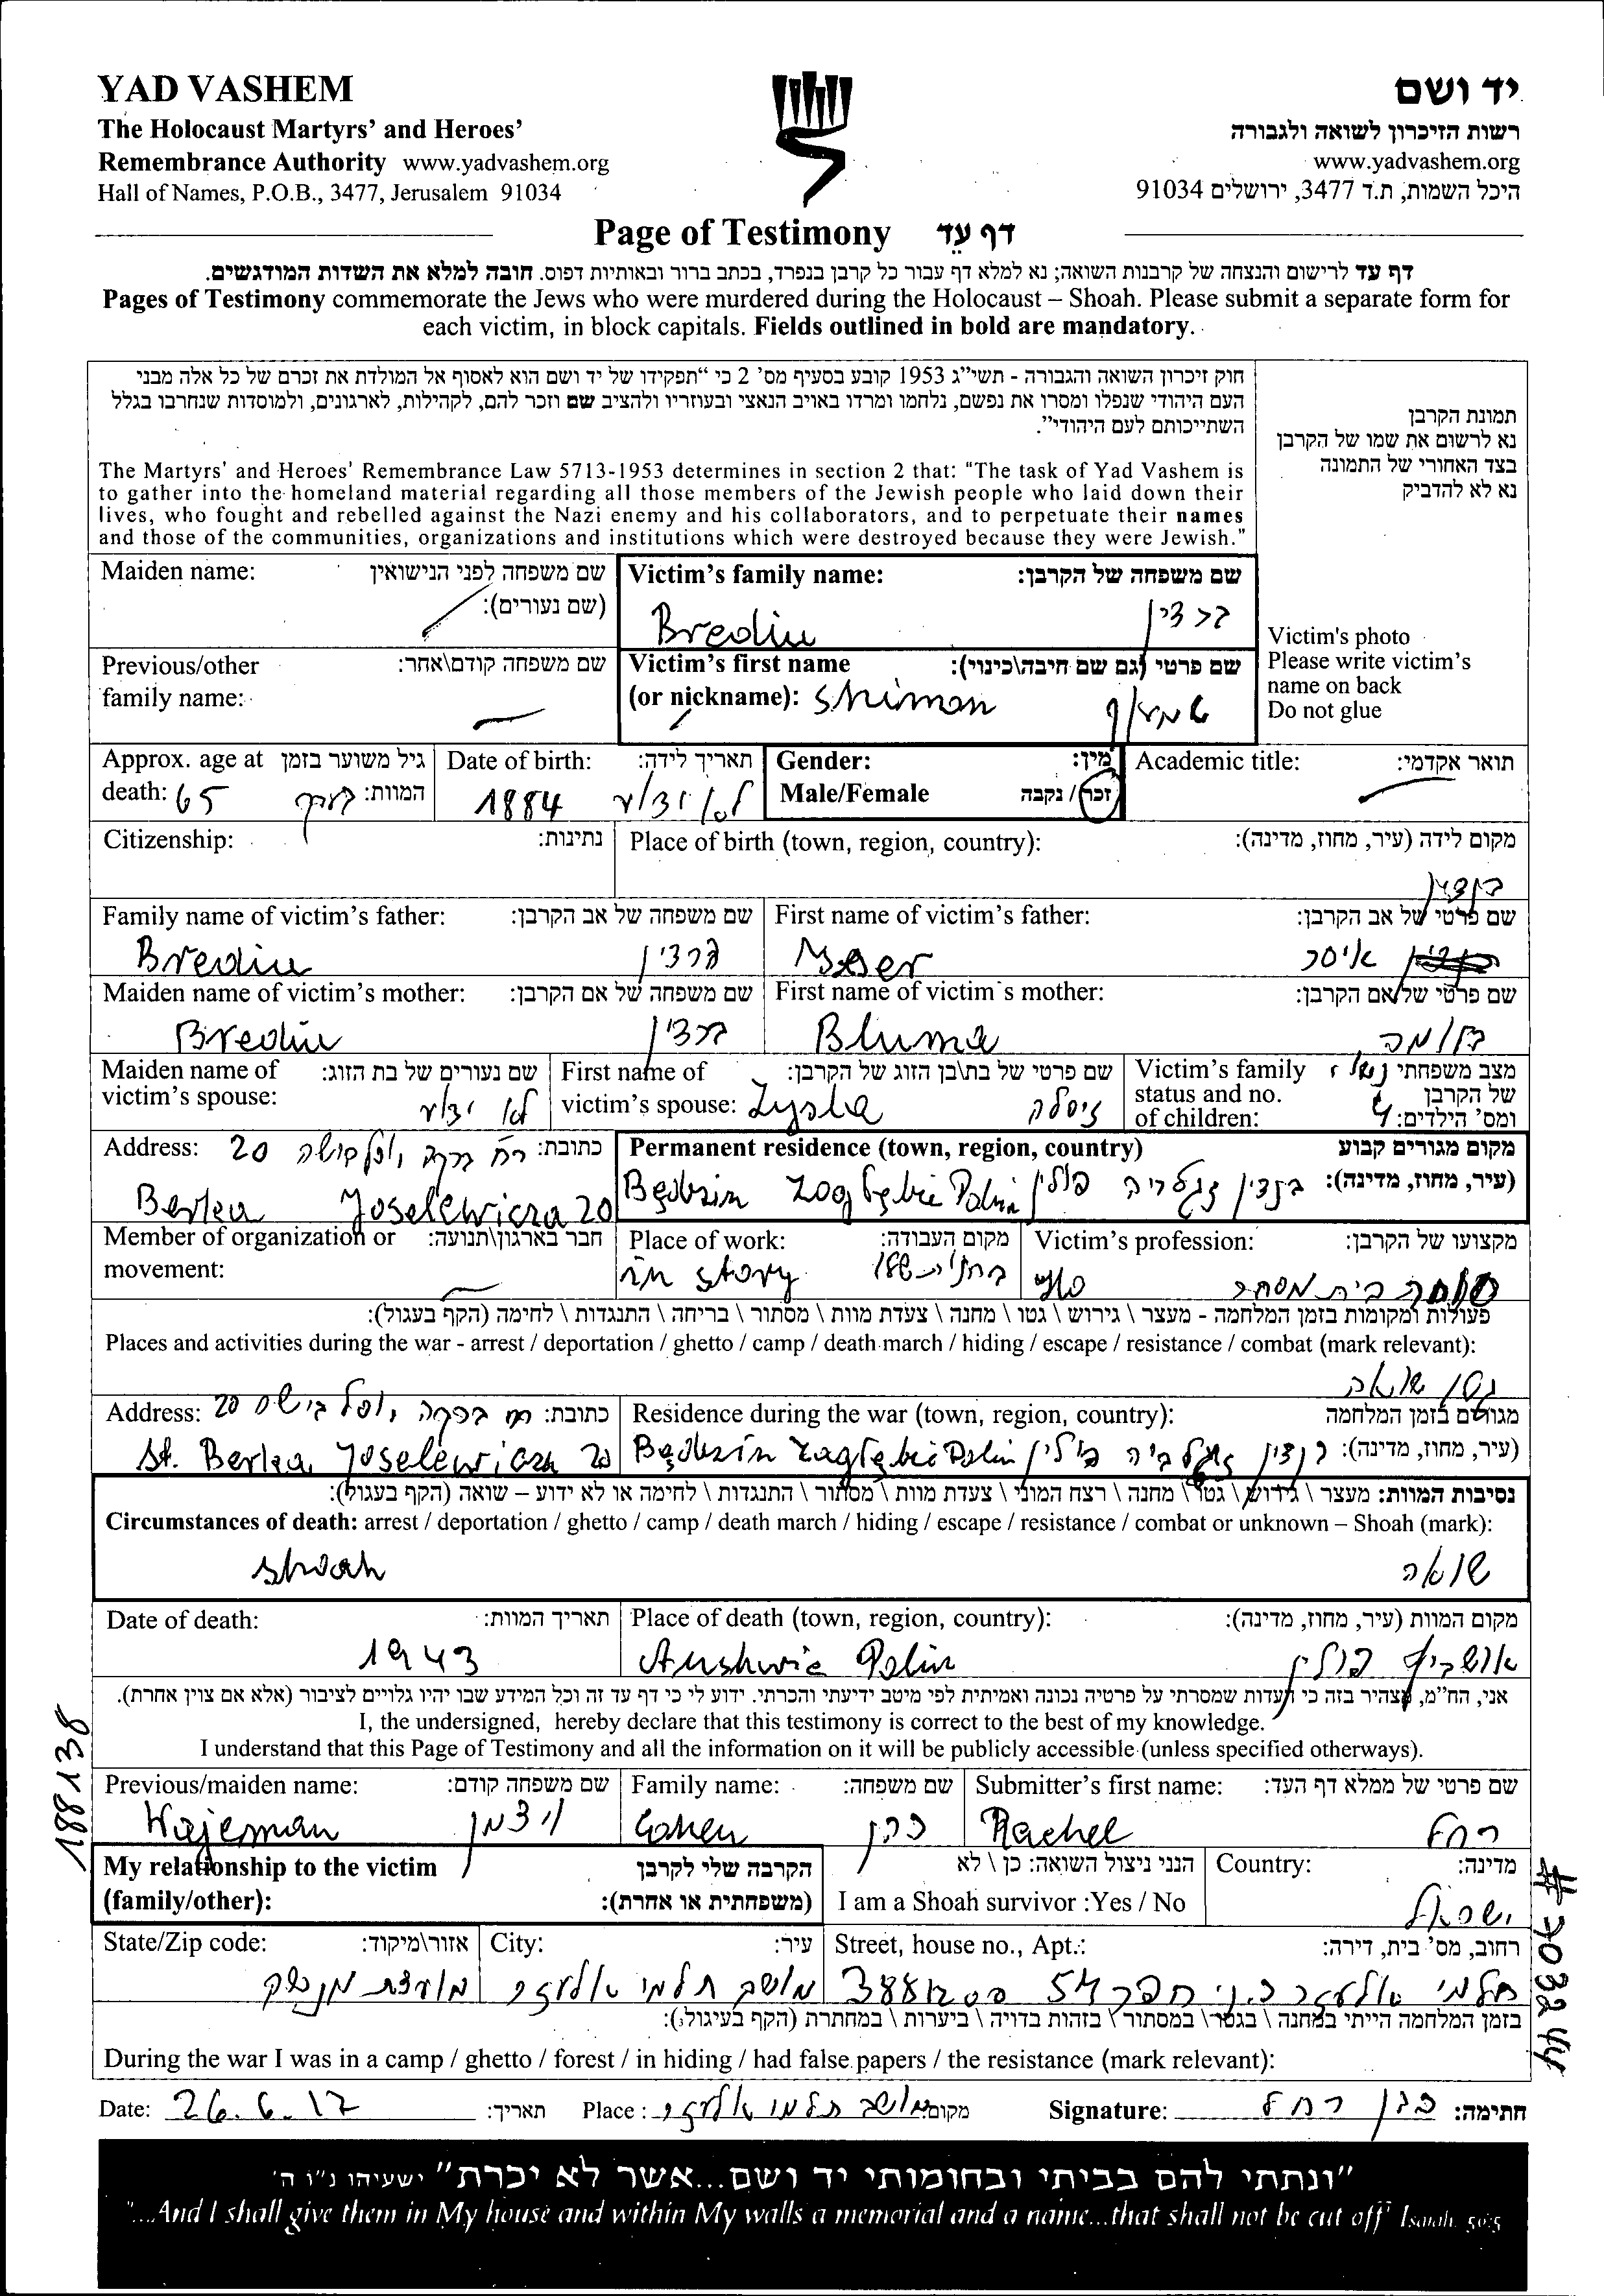 YAD VASHEM
יד ושם
The Holocaust Martyrs' and Heroes'
רשות הזיכרון לשואה ולגבורה
Remembrance Authority www.yadvashem.org
www.yadvashem.org
Hall of Names, P.O.B., 3477, Jerusalem 91034
היכל השמות, ת.ד 3477, ירושלים 91034
Page of Testimony דף עד
דף עד לרישום והנצחה של קרבנות השואה; נא למלא דף עבור כל קרבן בנפרד, בכתב ברור ובאותיות דפוס. חובה למלא את השדות המודגשים.
Pages of Testimony commemorate the Jews who were murdered during the Holocaust – Shoah. Please submit a separate form for
each victim, in block capitals. Fields outlined in bold are mandatory.
חוק זיכרון השואה והגבורה - תשי"ג 1953 קובע בסעיף מס' 2 כי "תפקידו של יד ושם הוא לאסוף אל המולדת את זכרם של כל אלה מבני
העם היהודי שנפלו ומסרו את נפשם, נלחמו ומרדו באויב הנאצי ובעוזריו ולהציב שם וזכר להם, לקהילות, לארגונים, ולמוסדות שנחרבו בגלל
השתייכותם לעם היהודי".
תמונת הקרבן
נא לרשום את שמו של הקרבן
בצד האחורי של התמונה
נא לא להדביק
The Martyrs' and Heroes' Remembrance Law 5713-1953 determines in section 2 that: "The task of Yad Vashem is
to gather into the homeland material regarding all those members of the Jewish people who laid down their
lives, who fought and rebelled against the Nazi enemy and his collaborators, and to perpetuate their names
and those of the communities, organizations and institutions which were destroyed because they were Jewish."
Maiden name: שם משפחה לפני הנישואין
(שם נעורים):
Victim's family name: שם משפחה של הקרבן:
Bredin ברדין
Victim's photo
Please write victim's
name on back
Do not glue
Previous/other שם משפחה קודם\אחר:
family name:
Victim's first name שם פרטי (גם שם חיבה\כינוי):
(or nickname): Shimon
Approx. age at גיל משוער בזמן
death: 65 המוות:
Date of birth: תאריך לידה:
1884 לא ידוע
Gender: מין:
Male/Female זכר / נקבה
Academic title: תואר אקדמי:
Citizenship: נתינות:
Place of birth (town, region, country): מקום לידה (עיר, מחוז, מדינה):
בנדין
Family name of victim's father: שם משפחה של אב הקרבן:
Bredin ברדין
First name of victim's father: שם פרטי של אב הקרבן:
איסר
Maiden name of victim's mother: שם משפחה של אם הקרבן:
Bredin ברדין
First name of victim's mother: שם פרטי של אם הקרבן:
Bluma בלומה
Maiden name of שם נעורים של בת הזוג:
victim's spouse: לא ידוע
First name of שם פרטי של בת\בן הזוג של הקרבן:
victim's spouse: Zysla זיסלה
Victim's family מצב משפחתי נשוי
status and no. של הקרבן
of children: ומס' הילדים: 4
Address: כתובת: 20
Berka Joselewicza 20
Permanent residence (town, region, country) מקום מגורים קבוע
(עיר, מחוז, מדינה): בנדין פולין
Będzin Zaglębie Polin
Member of organization or חבר בארגון\תנועה:
movement:
Place of work: מקום העבודה:
in story בחנות
Victim's profession: מקצועו של הקרבן:
בית מסחר
פעולות ומקומות בזמן המלחמה - מעצר \ גירוש \ גטו \ מחנה \ צעדת מוות \ מסתור \ בריחה \ התנגדות \ לחימה (הקף בעגול):
Places and activities during the war - arrest / deportation / ghetto / camp / death march / hiding / escape / resistance / combat (mark relevant):
גטו שואה
Address: כתובת: 20
St. Berka Joselewicza 20
Residence during the war (town, region, country): מגורים בזמן המלחמה
(עיר, מחוז, מדינה): בנדין פולין
Będzin Zaglębie Polin
נסיבות המוות: מעצר \ גירוש \ גטו \ מחנה \ רצח המוני \ צעדת מוות \ מסתור \ התנגדות \ לחימה או לא ידוע – שואה (הקף בעגול):
Circumstances of death: arrest / deportation / ghetto / camp / death march / hiding / escape / resistance / combat or unknown – Shoah (mark):
shoah שואה
Date of death: תאריך המוות:
1943
Place of death (town, region, country): מקום המוות (עיר, מחוז, מדינה):
Aushwic Polin אושביץ פולין
אני, הח"מ, מצהיר בזה כי העדות שמסרתי על פרטיה נכונה ואמיתית לפי מיטב ידיעתי והכרתי. ידוע לי כי דף עד זה וכל המידע שבו יהיו גלויים לציבור (אלא אם צוין אחרת).
I, the undersigned, hereby declare that this testimony is correct to the best of my knowledge.
I understand that this Page of Testimony and all the information on it will be publicly accessible (unless specified otherways).
Previous/maiden name: שם משפחה קודם:
Wajcman ויצמן
Family name: שם משפחה:
Cohen כהן
Submitter's first name: שם פרטי של ממלא דף העד:
Rachel רחל
My relationship to the victim הקרבה שלי לקרבן
(family/other): (משפחתית או אחרת):
הנני ניצול השואה: כן \ לא
I am a Shoah survivor :Yes / No
Country: מדינה:
ישראל
State/Zip code: אזור\מיקוד:
City: עיר:
מושב תלמי אלעזר
Street, house no., Apt.: רחוב, מס' בית, דירה:
תלמי אלעזר
בזמן המלחמה הייתי במחנה \ בגטו \ במסתור \ בזהות בדויה \ ביערות \ במחתרת (הקף בעיגול):
During the war I was in a camp / ghetto / forest / in hiding / had false papers / the resistance (mark relevant):
Date: 26.6.12 תאריך:
Place : מושב תלמי אלעזר מקום:
Signature: כהן רחל חתימה:
188138
"ונתתי להם בביתי ובחומותי יד ושם...אשר לא יכרת" ישעיהו נ"ו ה'
"...And I shall give them in My house and within My walls a memorial and a name...that shall not be cut off" Isaiah. 56:5